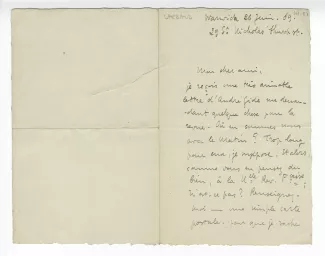 Warwick 26 juin. 09.
29 St Nicholas Church St.
Mon cher ami,
je reçois une très aimable
lettre d'André Gide me deman-
dant quelque chose pour la
revue. Où en sommes nous
avec le Matin? Trop long
pour eux, je suppose. Et alors
comme vous en pensez du
bien, à la Nlle Rev.
n'est-ce pas? Renseignez-
moi un une simple carte
postale. pour que je sache